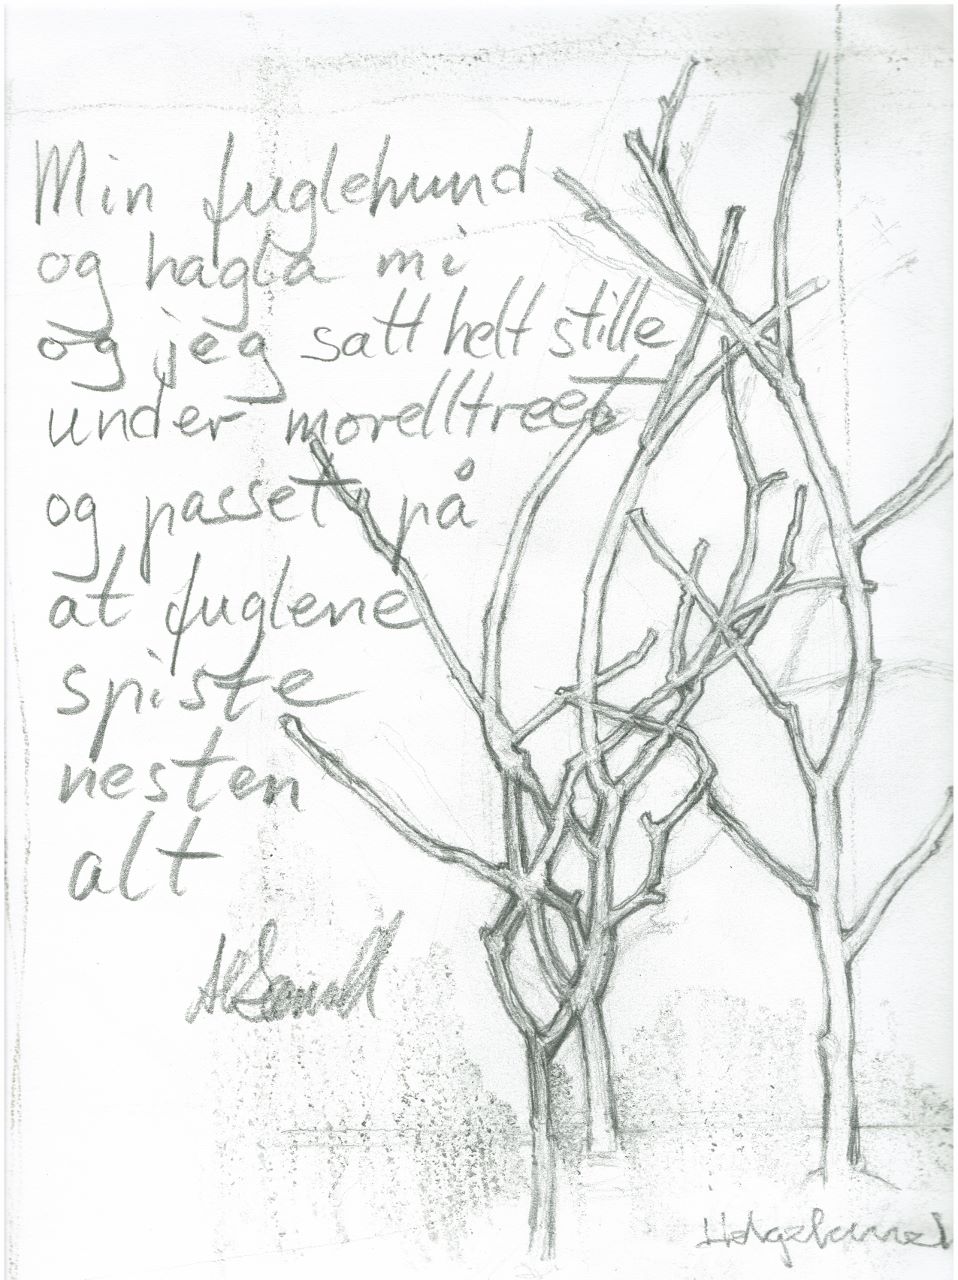 Min fuglehund
og hagla mi
og jeg satt helt stille
under morelltreet
og passet på
at fuglene
spiste
nesten
alt